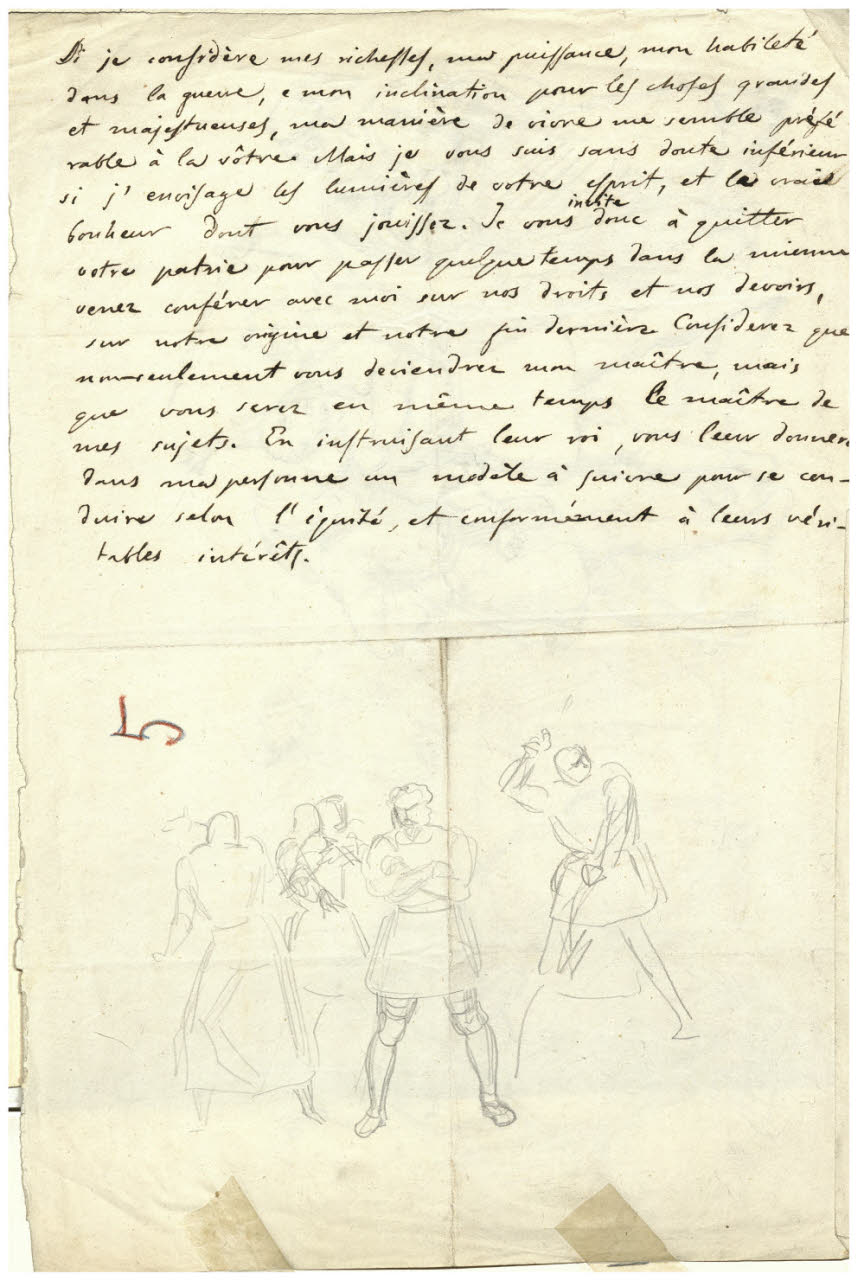 Si je considère mes richesses, ma puissance, mon habileté
dans la guerre, e mon inclination pour les choses grandes
et majestueuses, ma manière de vivre me semble préfé
rable à la vôtre. Mais je vous suis sans doute inférieur
si j'envisage les lumières de votre esprit, et le vraie
invite
bonheur dont vous jouissez. Je vous donc à quitter
votre patrie pour passer quelque temps dans la mienne
venez conférer avec moi sur nos droits et nos devoirs,
sur notre origine et notre fin dernière Considerez que
non-seulement vous deviendrez mon maître, mais
que vous serez en même temps le maître de
mes sujets. En instruisant leur roi, vous leur donnere
dans ma personne un modèle à suivre pour se con-
duire selon l'équité, et conformément à leurs véri-
tables intérêts.
5